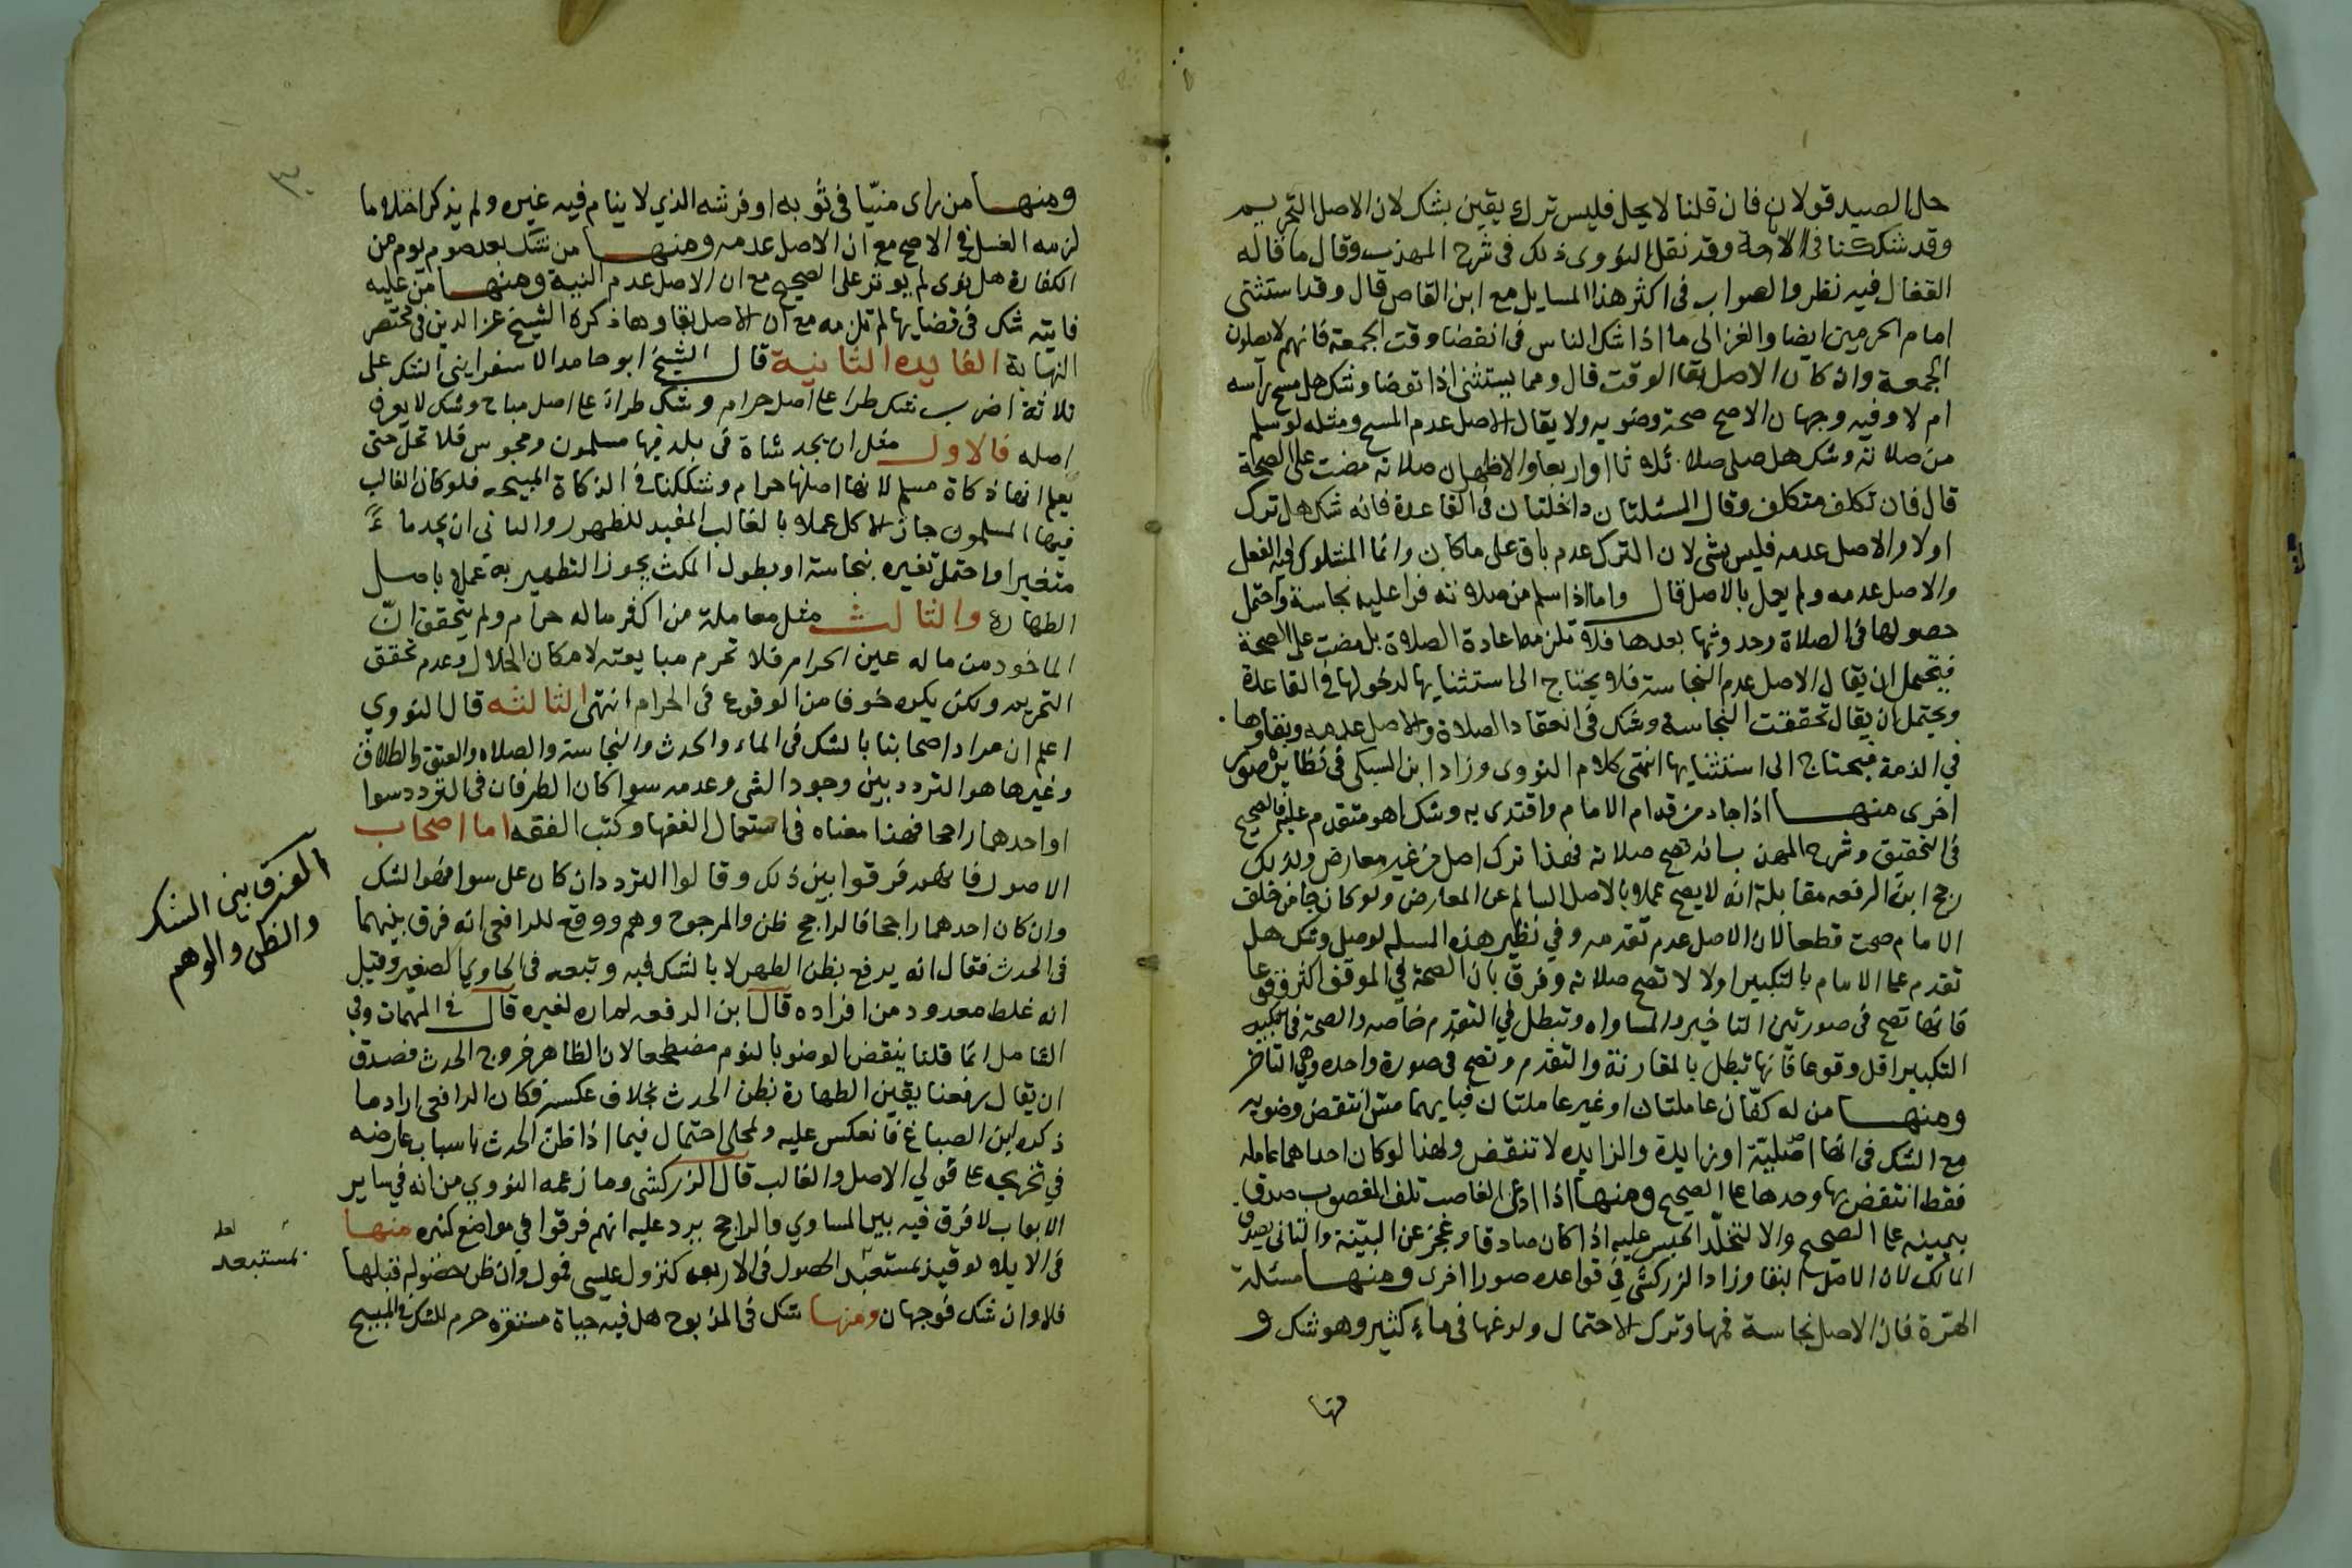 حل الصيد قولان فان قلنا لا يحل فليس ترك يقين بشك لان الاصل التحريم
وقد شككنا في الاباحة وقد نقل النووى ذلك فى شرح المهذب وقال ما قاله
القفال فيه نظر والصواب فى اكثر هذا المسايل مع ابن القاص قال وقد استثنى
امام الحرمين ايضا والغزالى ما اذا شك الناس فى انقضا وقت الجمعة فانهم لا يصلون
الجمعة وان كان الاصل بقا الوقت قال ومما يستثنى اذا توضا وشك هل مسح رأسه
ام لا وفيه وجهان الاصح صحة وضويه ولا يقال الاصل عدم المسح ومثله لو سلم
من صلاته وشك هل صلى ثلاثا او اربعا والاظهر ان صلاته مضت على الصحة
قال فان تكلف متكلف وقال المسئلتان داخلتان فى القاعدة فانه شك هل ترك
اولا والاصل عدمه فليس بشى لان الترك عدم باق على ما كان وانما المشكوك فيه الفعل
والاصل عدمه ولم يعمل بالاصل قال واما اذا سلم من صلاته فراى عليه نجاسة واحتمل
حصولها فى الصلاة وحدوثها بعدها فلا تلزمه اعادة الصلاة بل مضت على الصحة
فيحتمل ان يقال الاصل عدم النجاسة فلا يحتاج الى استثنايها لدخولها في القاعدة
ويحتمل ان يقال تحققت النجاسة وشك فى انعقاد الصلاة والاصل عدمه وبقاوها
في الذمة فيحتاج الى استثنايها انتهى كلام النووى وزاد ابن السبكى فى نظايره صور
اخرى منها اذا جاء من قدام الامام واقتدى به وشك اهو متقدم عليه فالصحيح
فى التحقيق وشرح المهذب انه تصح صلاته فهذا ترك اصل من غير معارض ولذلك
رجح ابن الرفعه مقابلة انه لا يصح عملا بالاصل السالم عن المعارض ولو كان جا من خلف
الامام صحت قطعا لان الاصل عدم تقدمه وفي نظير هذه المسلة لو صلى وشك هل
تقدم على الامام بالتكبير اولا لا تصح صلاته وفرق بان الصحة في الموقف اكثر وقوعا
فانها تصح فى صورتين التاخير والمساواه وتبطل في التقدم خاصه والصحة فى
التكبير اقل وقوعا فانها تبطل بالمقارنة والتقدم وتصح فى صورة واحده وهى التاخر
ومنها من له كفّان عاملتان او غير عاملتان فبايهما مس انتقض وضويه
مع الشك فى انها اصليّة او زايدة والزايده لا تنقض ولهذا لو كان احداهما عامله
فقط انتقض بها وحدها على الصحيح ومنها اذا ادعى الغاصب تلف المغصوب صدق
بيمينه على الصحيح والا لتخلّد الحبس عليه اذا كان صادقا وعجز عن البيّنة والثانى يصدق
المالك لان الاصل البقا وزاد الزركشى فى قواعده صورا اخرى ومنها مسئلة
الهرّة فان الاصل نجاسة فمها وترك الاحتمال ولوغها فى ماء كثير وهو شك و
منها
٣٠
ومنها من راى منيّا فى ثوبه او فرشه الذي لا ينام فيه غيره ولم يذكر احتلاما
لزمه الغسل في الاصح مع ان الاصل عدمه ومنها من شك بعد صوم يوم من
الكفارة هل نوى لم يوثر على الصحيح مع ان الاصل عدم النية ومنها من عليه
فايته شك فى قضايها لم تلزمه مع ان الاصل بقاوها ذكره الشيخ عز الدين فى مختصر
النهاية الفايده الثانية قال الشيخ ابو حامد الاسفراينى الشك على
ثلاثة اضرب شك طرا على اصل حرام وشك طرأ على اصل مباح وشك لا يعرف
اصله فالاول مثل ان يجد شاة فى بلد فيها مسلمون ومجوس فلا تحل حتى
يعلم انها ذكاة مسلم لانها اصلها حرام وشككنا فى الذكاة المبيحه فلو كان الغالب
فيها المسلمون جاز الاكل عملا بالغالب المفيد للظهور والثانى ان يجد ماءً
متغيرا واحتمل تغيره بنجاسة او بطول المكث يجوز التطهير به عملا باصل
الطهارة والثالث مثل معاملة من اكثر ماله حرام ولم يتحقق انّ
الماخوذ من ماله عين الحرام فلا تحرم مبايعته لامكان الحلال وعدم تحقق
التحريم ولكن يكره خوفا من الوقوع فى الحرام انتهى الثالثه قال النووي
اعلم ان مراد اصحابنا بالشك فى الماء والحدث والنجاسة والصلاه والعتق والطلاق
وغيرها هو التردد بين وجود الشى وعدمه سوا كان الطرفان فى التردد سوا
او احدهما راجحا فهذا معناه فى استعمال الفقها وكتب الفقه اما اصحاب
الاصول فانهم فرقوا بين ذلك وقالوا التردد ان كان على سوا فهو الشك
وان كان احدهما راجحا فالراجح ظن والمرجوح وهم ووقع للرافعى انه فرق بينهما
فى الحدث فقال انه يرفع بظن الطهر لا بالشك فيه وتبعه فى الحاوى الصغير وقيل
انه غلط معدود من افراده قال ابن الرفعه لم اره لغيره قال في المهمات وفي
الشامل انما قلنا ينقض الوضو بالنوم مضطجعا لان الظاهر خروج الحدث فصدق
ان يقال رفعنا يقين الطهارة بظن الحدث بخلاف عكسه فكان الرافعى اراد ما
ذكره ابن الصباغ فانعكس عليه ولمجلى احتمال فيما اذا ظن الحدث باسباب عارضه
في تخريجه على قولي الاصل والغالب قال الزركشى وما زعمه النووي من انه في ساير
الابواب لا فرق فيه بين المساوي والراجح يرد عليه انهم فرقوا في مواضع كثيره منها
فى الايلا لو قيد بمستبعد الحصول فى الاربعه كنزول عيسى فمول وان ظن حضوله قبلها
فلا وان شك فوجهان ومنها شك فى المذبوح هل فيه حياة مستقره حرم للشك في المبيح
الفرق بين الشك
والظن والوهم
لعله
بمستبعد